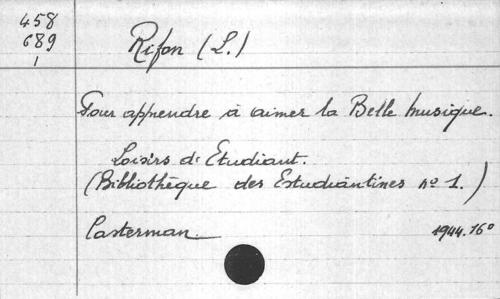 458
689
1
Rifon (L.)
Pour apprendre à aimer la Belle musique.
Loisirs d'Etudiant.
(Bibliothèque des Estudiantines nº 1.)
Casterman. 1944. 16º